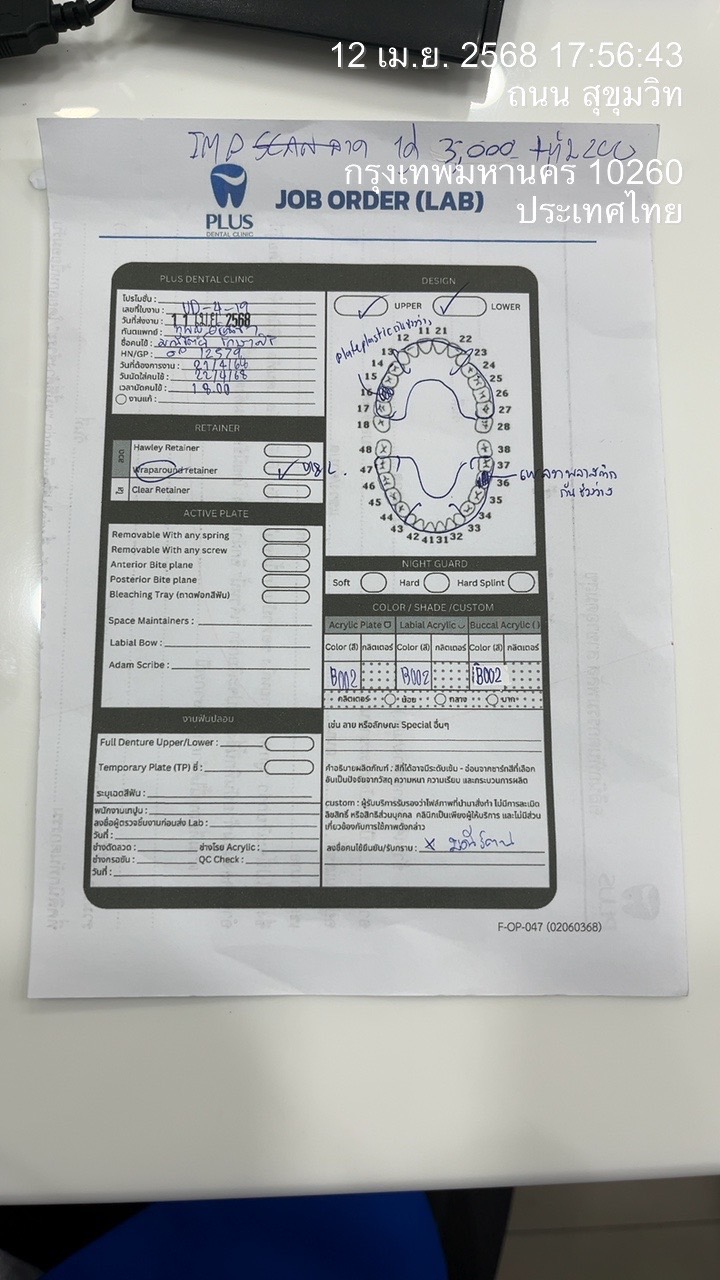 12 เม.ย. 2568 17:56:43
ถนน สุขุมวิท
กรุงเทพมหานคร 10260
ประเทศไทย
IMP SCAN ลวด 1คู่ 3,000
PLUS
DENTAL CLINIC
JOB ORDER (LAB)
PLUS DENTAL CLINIC
โปรโมชั่น :
เลขที่ใบงาน : UD-4-19
วันที่ส่งงาน : 11 เม.ย. 2568
ทันตแพทย์ :
ชื่อคนไข้ :
HN/GP : 12579
วันที่ต้องการงาน : 21/4/68
วันนัดใส่คนไข้ : 22/4/68
เวลานัดคนไข้ : 18.00
งานแก้ :
RETAINER
ลวด
Hawley Retainer
Wraparound retainer
ใส
Clear Retainer
ACTIVE PLATE
Removable With any spring
Removable With any screw
Anterior Bite plane
Posterior Bite plane
Bleaching Tray (ถาดฟอกสีฟัน)
Space Maintainers :
Labial Bow :
Adam Scribe :
งานฟันปลอม
Full Denture Upper/Lower :
Temporary Plate (TP) ซี่ :
ระบุเฉดสีฟัน :
พนักงานเทปูน :
ลงชื่อผู้ตรวจชิ้นงานก่อนส่ง Lab :
วันที่ :
ช่างดัดลวด : ช่างโรย Acrylic :
ช่างกรอขัด : QC Check :
วันที่ :
DESIGN
UPPER LOWER
plate plastic กันช่องว่าง
11 21
12 22
13 23
14 24
15 25
16 26
17 27
18 28
48 38
47 37
46 36
45 35
44 34
43 33
42 41 31 32
เพลทพลาสติก
กันช่องว่าง
NIGHT GUARD
Soft Hard Hard Splint
COLOR / SHADE /CUSTOM
Acrylic Plate Labial Acrylic Buccal Acrylic ( )
Color (สี) กลิตเตอร์ Color (สี) กลิตเตอร์ Color (สี) กลิตเตอร์
B002 B002 B002
กลิตเตอร์ น้อย กลาง มาก
เช่น ลาย หรือลักษณะ Special อื่นๆ
คำอธิบายผลิตภัณฑ์ : สีที่ได้อาจมีระดับเข้ม - อ่อนจากชาร์ทสีที่เลือก
อันเป็นปัจจัยจากวัสดุ ความหนา ความเรียบ และกระบวนการผลิต
custom : ผู้รับบริการรับรองว่าไฟล์ภาพที่นำมาสั่งทำ ไม่มีการละเมิด
ลิขสิทธิ์ หรือสิทธิส่วนบุคคล คลินิกเป็นเพียงผู้ให้บริการ และไม่มีส่วน
เกี่ยวข้องกับการใช้ภาพดังกล่าว
ลงชื่อคนไข้ยืนยัน/รับทราบ : x
F-OP-047 (02060368)